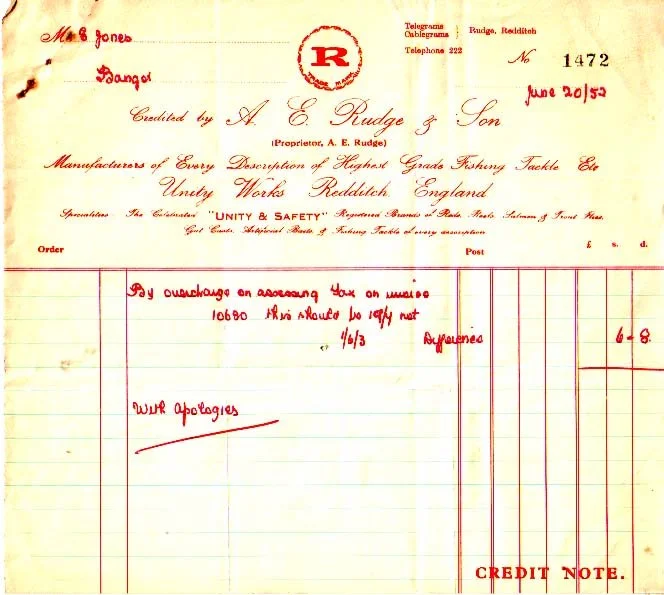 Telegrams
Cablegrams
Rudge, Redditch
Telephone 222
Mr E Jones
Bangor
R
TRADE MARK
No 1472
June 20/52
Credited by A. E. Rudge & Son
(Proprietor, A. E. Rudge)
Manufacturers of Every Description of Highest Grade Fishing Tackle Etc
Unity Works Redditch England
Specialities The Celebrated "UNITY & SAFETY" Registered Brands of Rods, Reels Salmon & Trout Flies.
Gut Casts, Artificial Baits & Fishing Tackle of every description
Order
Post
£ s. d.
By overcharge on assessing tax on invoice
10680 this should be 19/7 not
1/6/3 Difference 6-8
With Apologies
CREDIT NOTE.